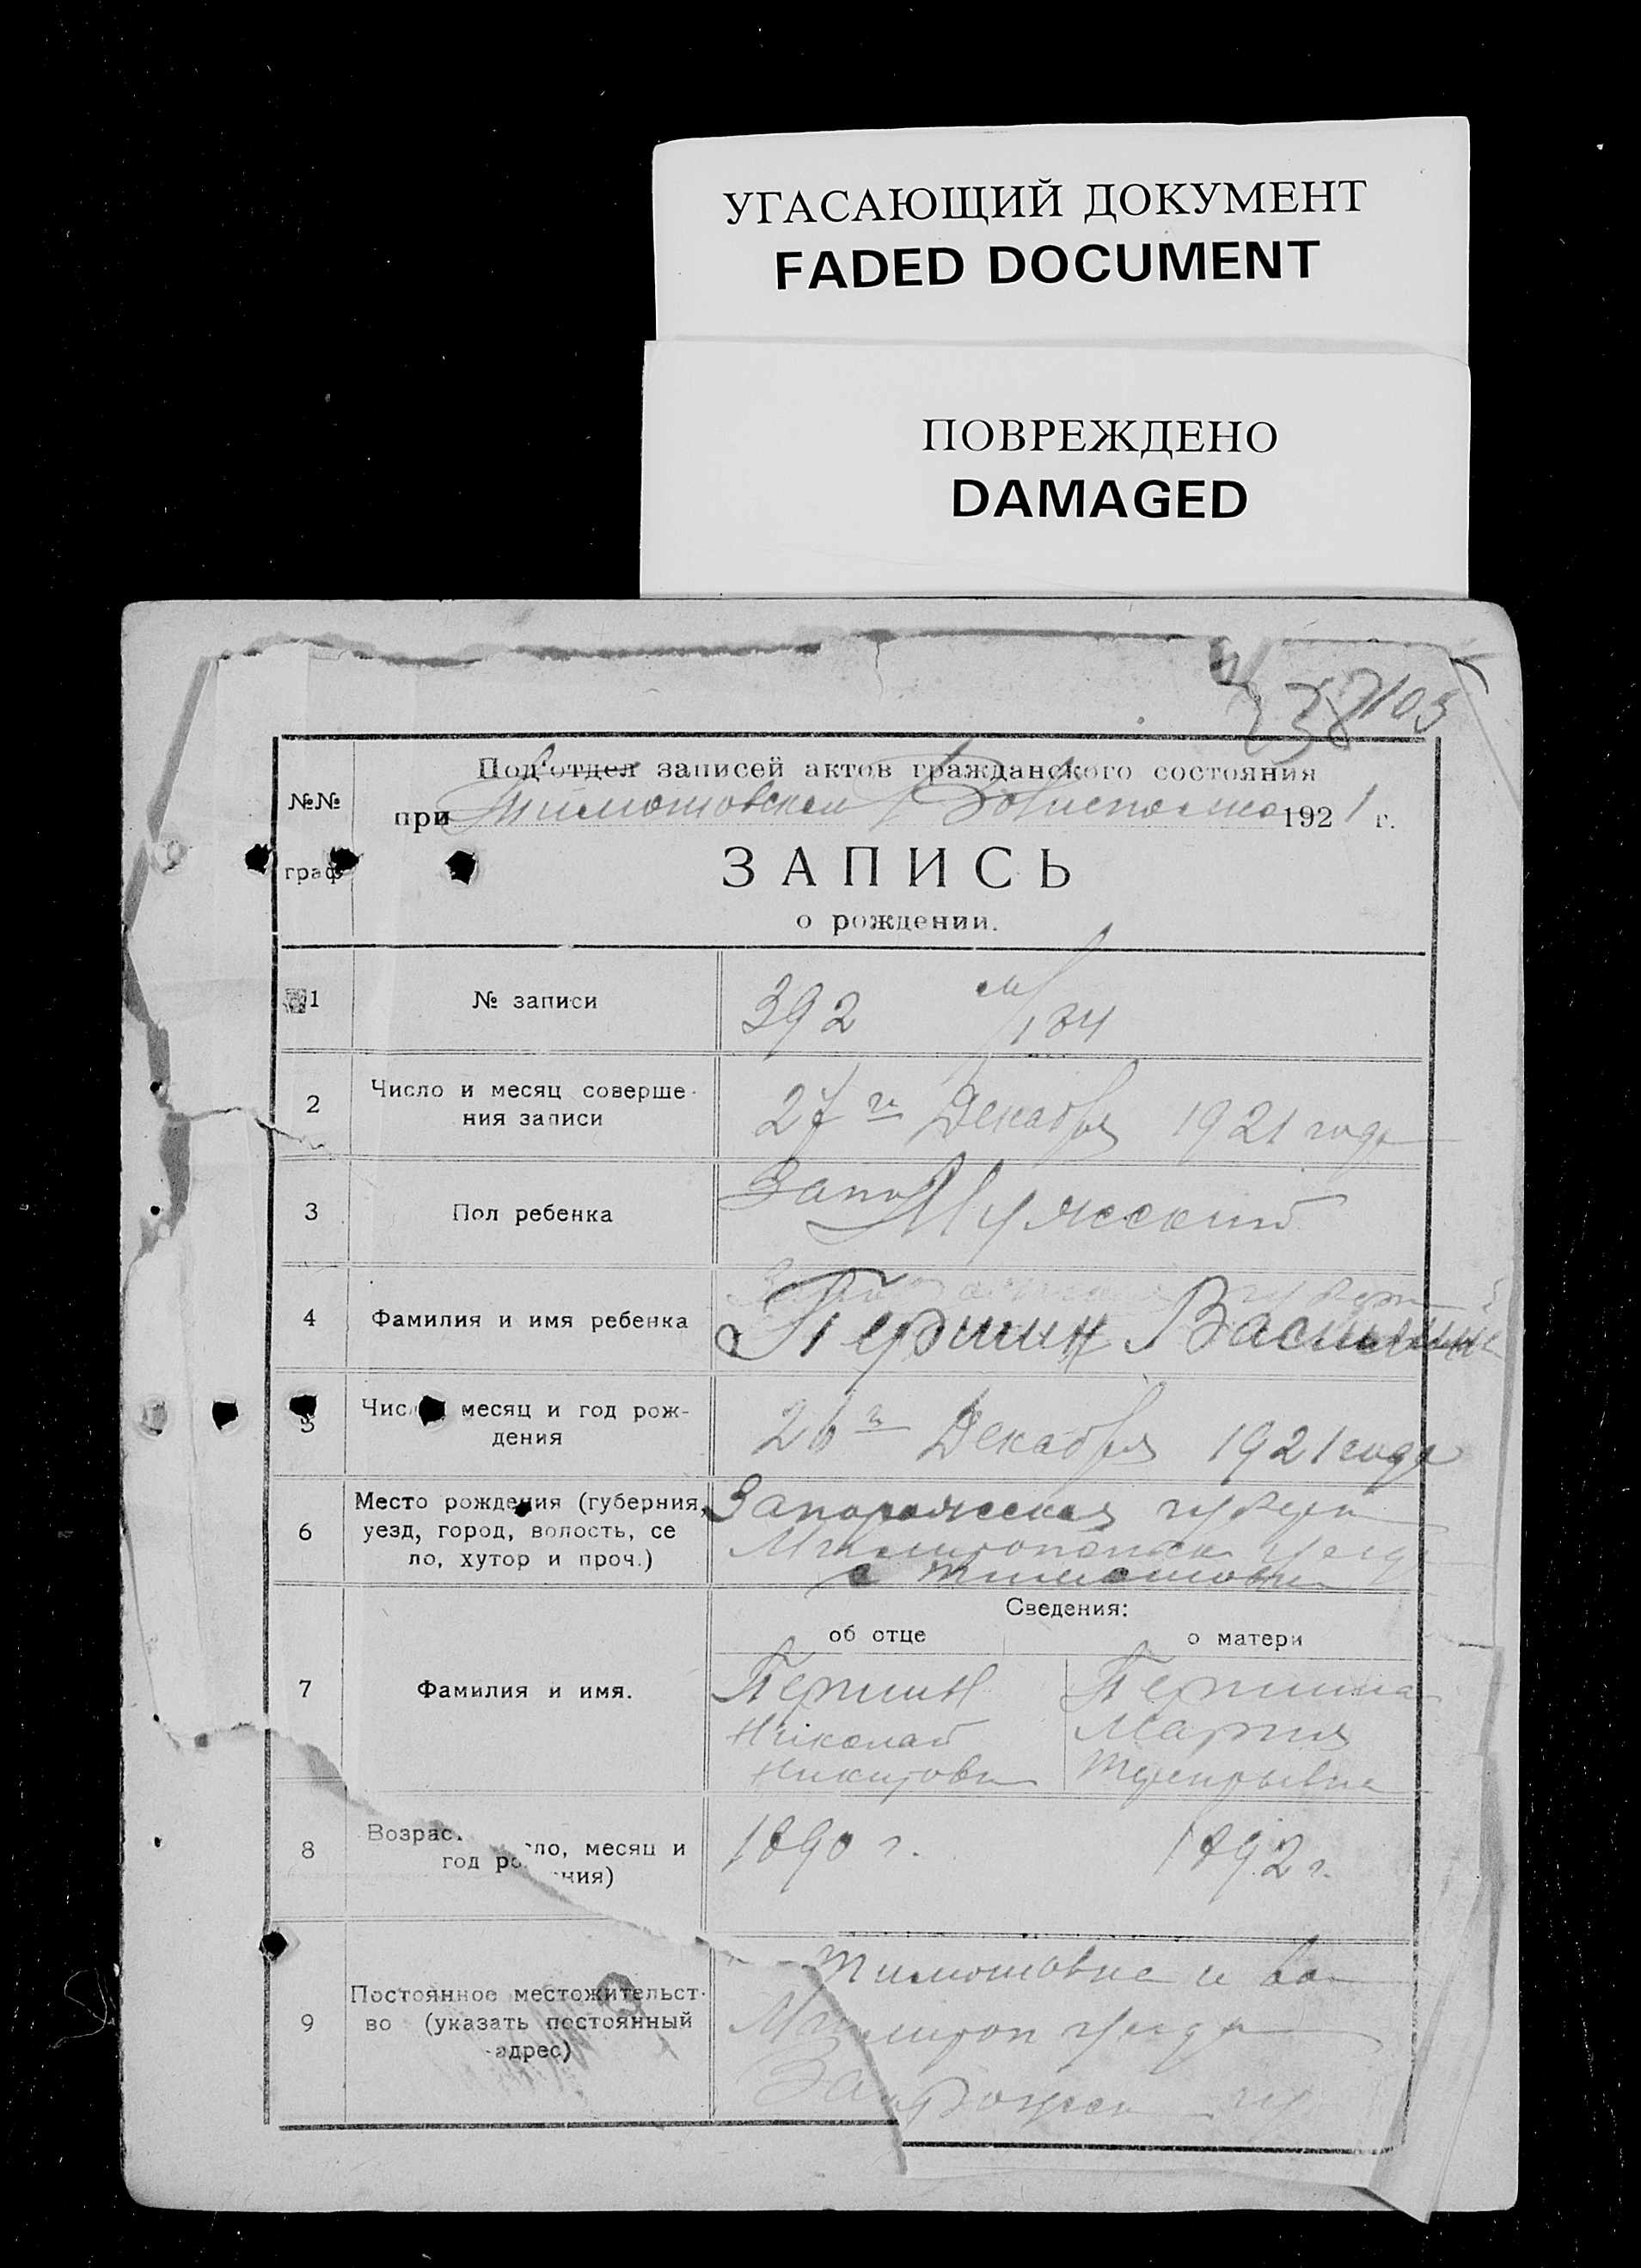 УГАСАЮЩИЙ ДОКУМЕНТ
FADED DOCUMENT
ПОВРЕЖДЕНО
DAMAGED
238 103
№№
граф
Под'отдел записей актов гражданского состояния
при Тимошовском Волисполкоме 1921 г.
ЗАПИСЬ
о рождении.
1 № записи 392 м/184
2 Число и месяц соверше-
ния записи
27го Декабря 1921 года
3 Пол ребенка Запо Мужской
4 Фамилия и имя ребенка Першин Василий
5 Чис месяц и год рож-
дения
26го Декабря 1921 года
6 Место рождения (губерния,
уезд, город, волость, се
ло, хутор и проч.)
Запорожская губерн
Мелитопольск уезда
с Тимошовка
Сведения:
об отце о матери
7 Фамилия и имя.
Першин
Николай
Никитови
Першина
Мария
8 Возрас. ло, месяц и
год ро ния)
1890 г. 1892 г.
9 Постоянное местожительст-
во (указать постоянный
адрес)
Тимошовка и вол
Мелитоп уезда
Запорожск гу